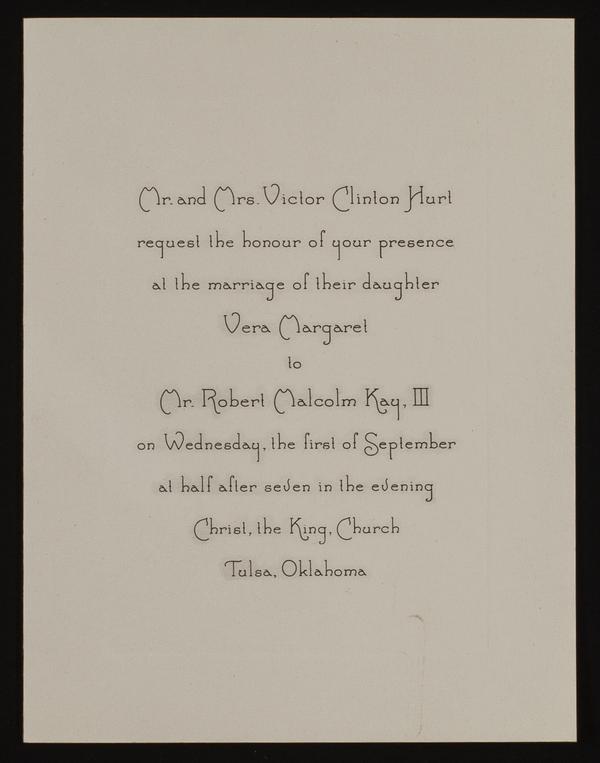 Mr. and Mrs. Victor Clinton Hurt
request the honour of your presence
at the marriage of their daughter
Vera Margaret
to
Mr. Robert Malcolm Kay, III
on Wednesday, the first of September
at half after seven in the evening
Christ, the King, Church
Tulsa, Oklahoma